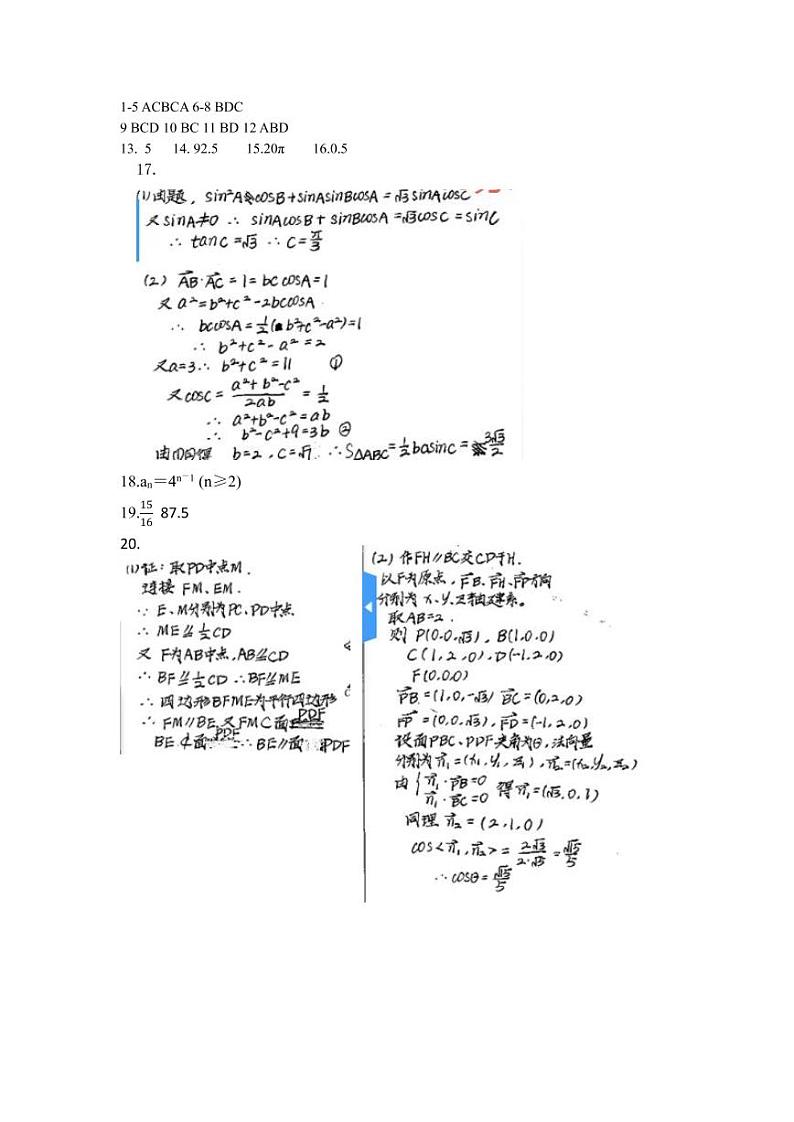 1-5 ACBCA 6-8 BDC
9 BCD 10 BC 11 BD 12 ABD
13. 5 14. 92.5 15.20π 16.0.5
17.
(1)由题，sin²AcosB+sinAsinBcosA=√3sinAcosC
又sinA≠0 ∴ sinAcosB+sinBcosA=√3cosC=sinC
∴ tanC=√3 ∴C=π/3
(2) AB·AC=1=bccosA=1
又a²=b²+c²-2bccosA
∴ bccosA=1/2(b²+c²-a²)=1
∴ b²+c²-a²=2
又a=3∴ b²+c²=11 ①
又cosC=(a²+b²-c²)/2ab=1/2
∴ a²+b²-c²=ab
∴ b²-c²+9=3b ②
由①②得 b=2，C=√7 ∴S△ABC=1/2basinC=3√3/2
18.aₙ＝4ⁿ⁻¹ (n≥2)
19.15/16 87.5
20.
(1)证：取PD中点M.
连接 FM、EM.
∵ E、M分别为PC、PD中点
∴ ME⫽1/2CD
又 F为AB中点,AB⫽CD
∴BF⫽1/2CD ∴BF⫽ME
∴四边形BFME为平行四边形
∴ FM//BE 又FM⊂面PDF
BE⊄面PDF ∴BE//面PDF
(2)作FH//BC交CD于H.
以F为原点，FB、FH、FP方向
分别为x、y、z轴建系。
取AB=2.
则 P(0,0,√3)，B(1,0,0)
C(1,2,0)，D(-1,2,0)
F(0,0,0)
PB=(1,0,-√3) BC=(0,2,0)
FP=(0,0,√3)，FD=(-1,2,0)
设面PBC、PDF夹角为θ，法向量
分别为n₁=(x₁,y₁,z₁)，n₂=(x₂,y₂,z₂)
由{n₁·PB=0 n₁·BC=0 得n₁=(√3,0,1)
同理n₂=(2,1,0)
cos<n₁,n₂>=2√3/2·√5=√15/5
∴cosθ=√15/5